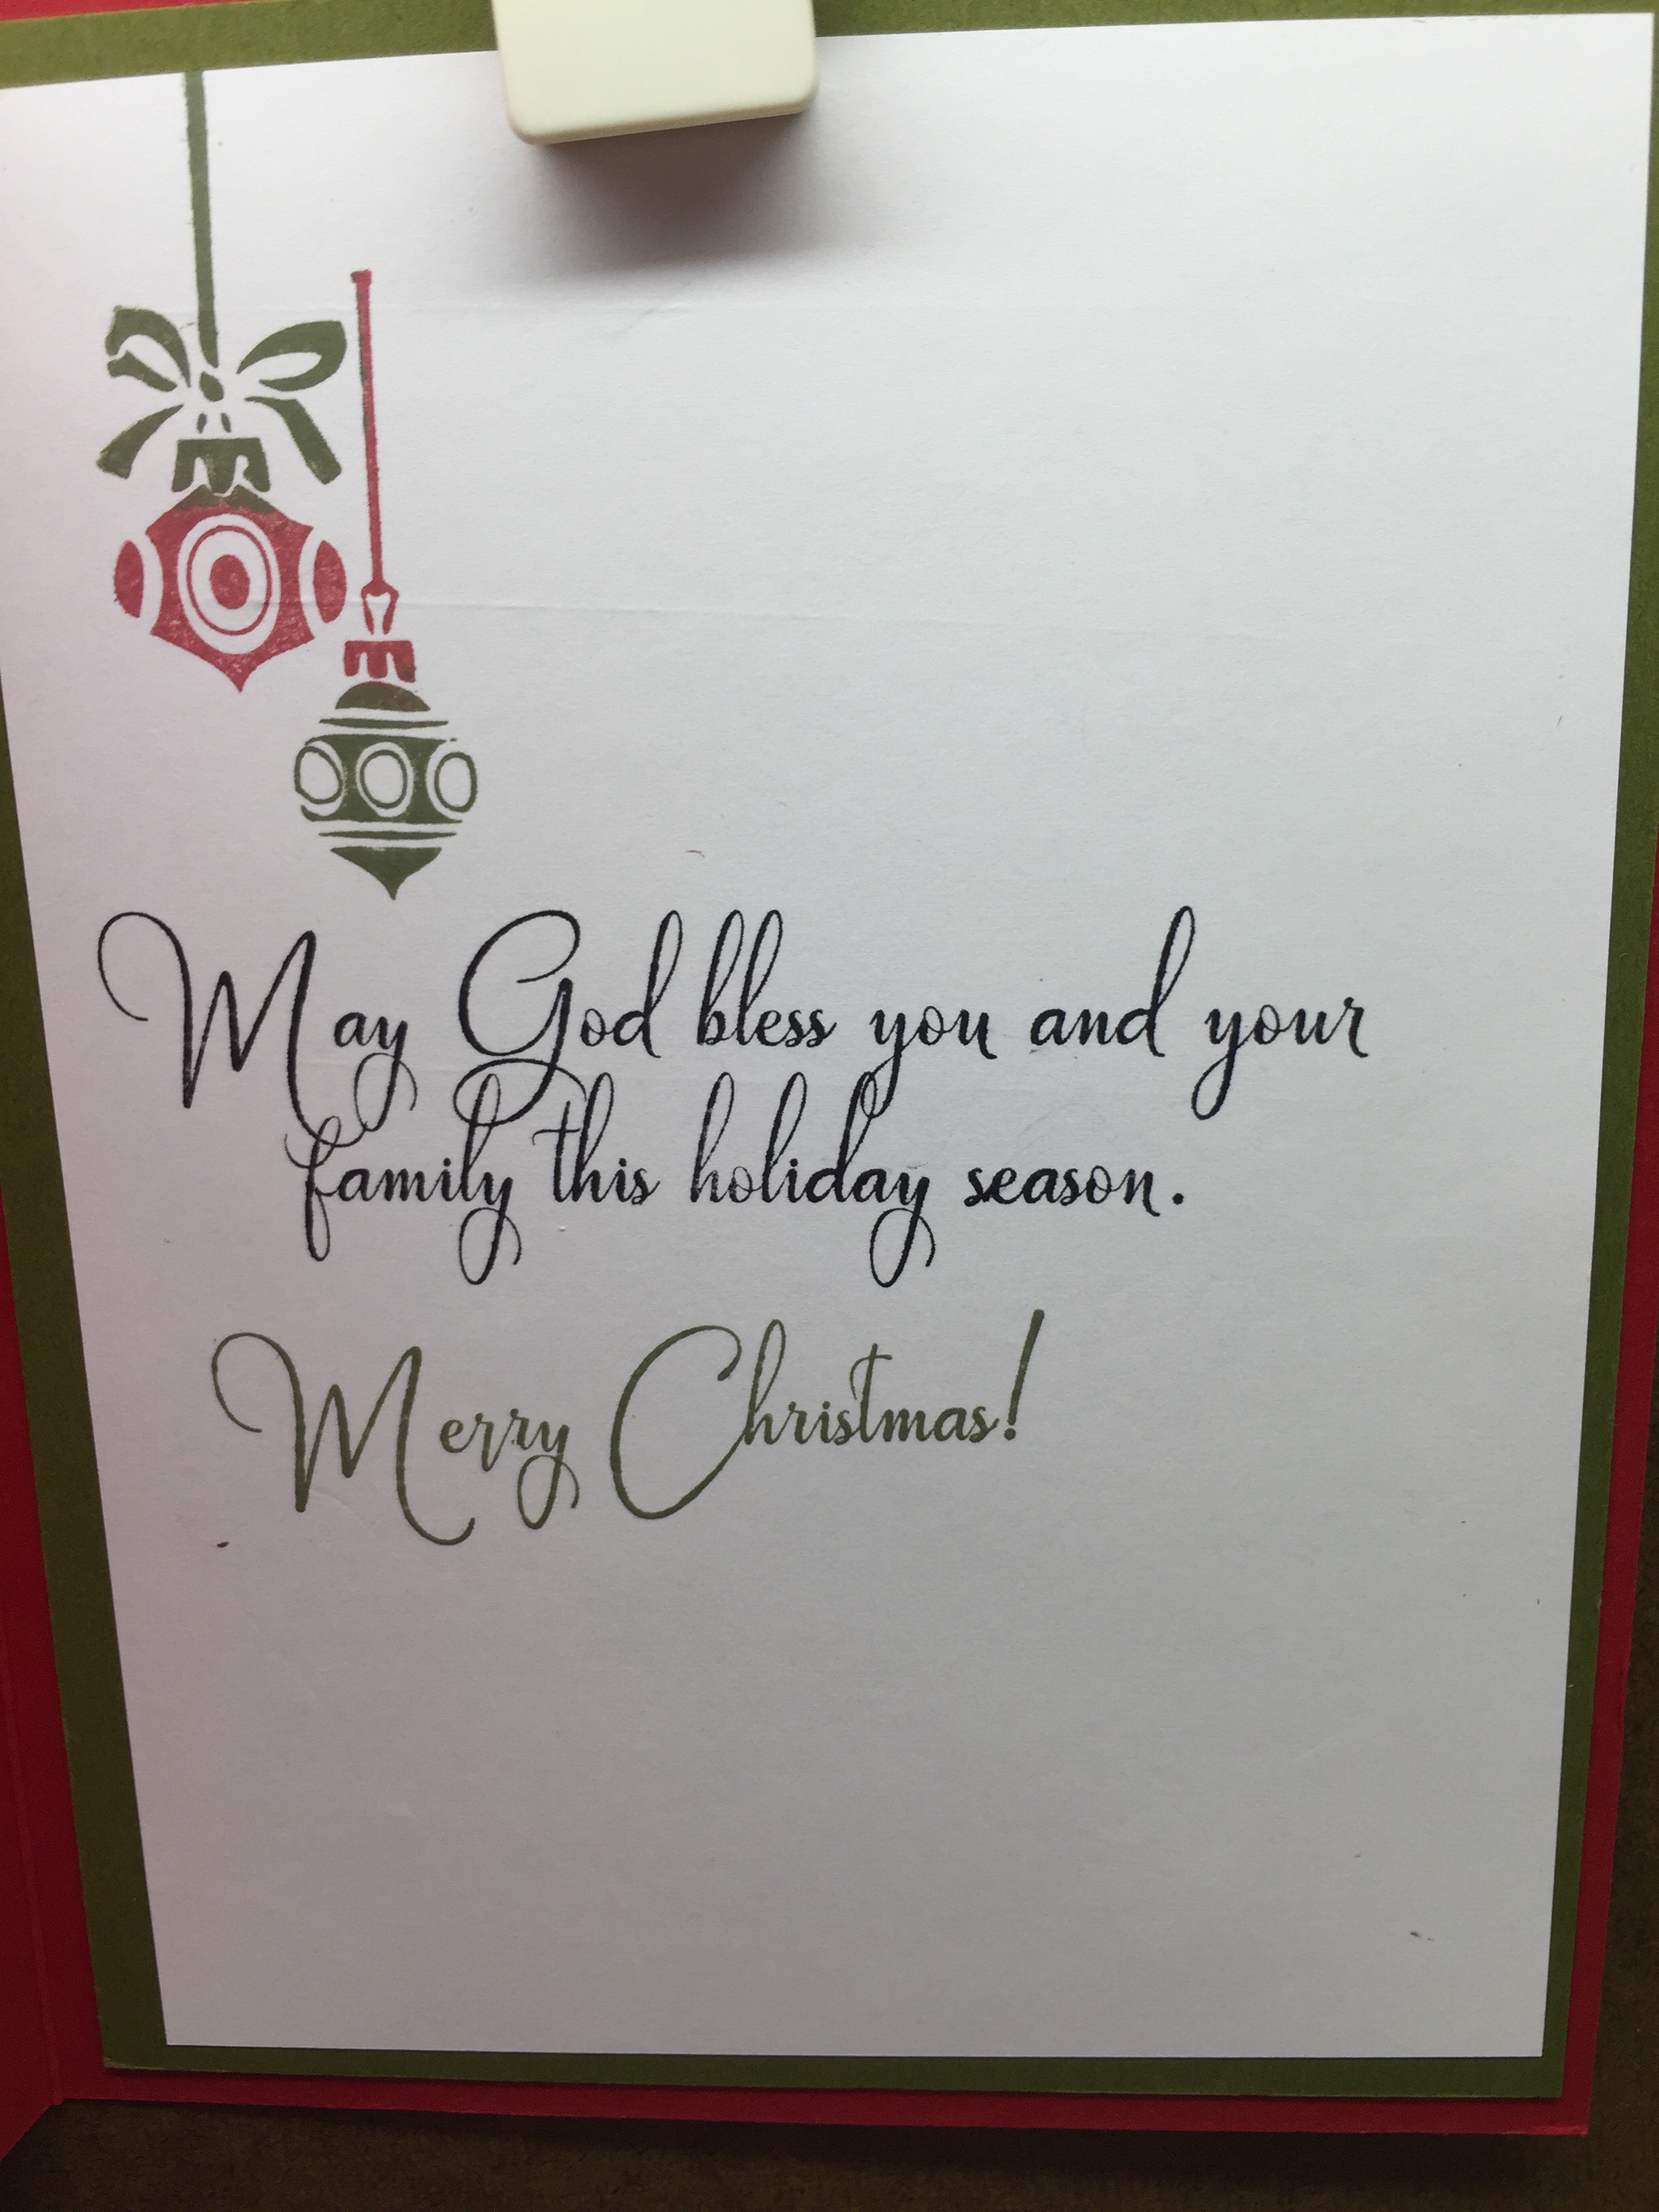 May God bless you and your
family this holiday season.
Merry Christmas!